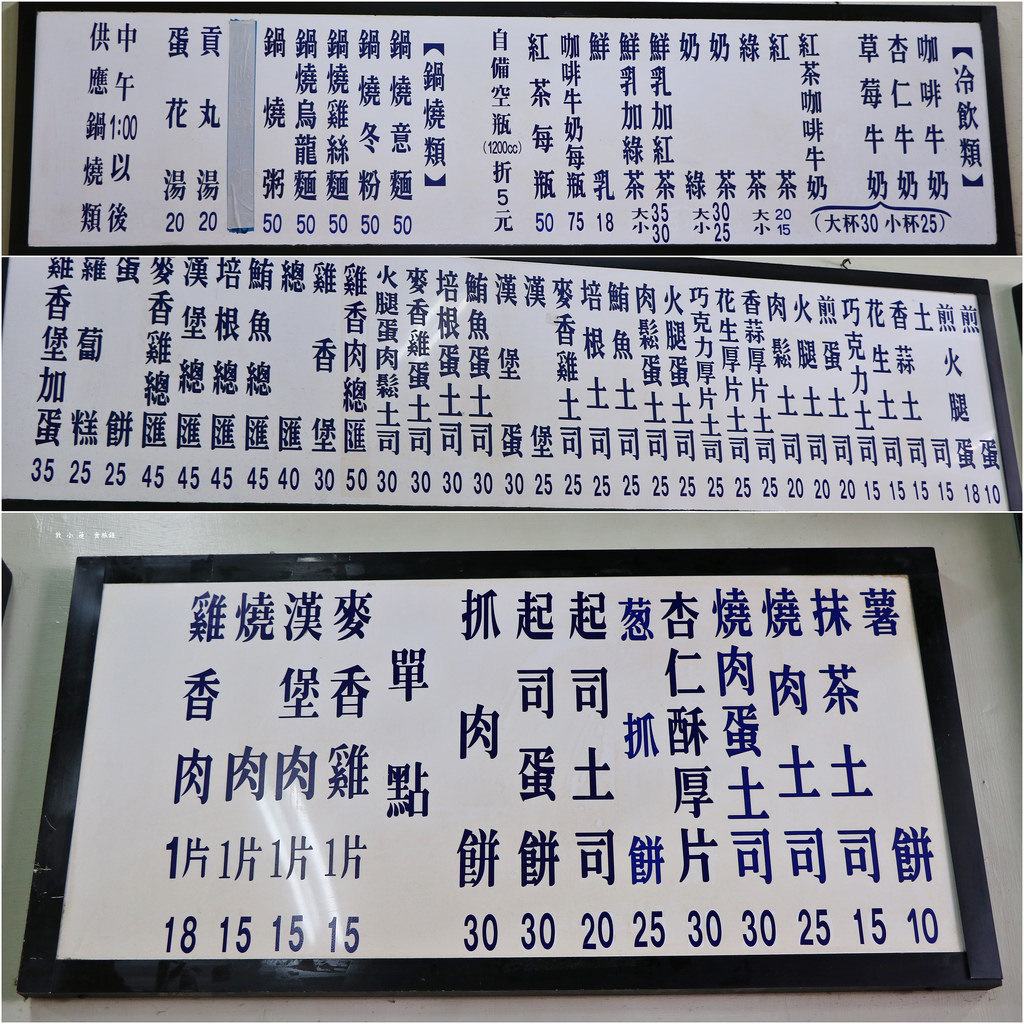 【冷飲類】
咖啡牛奶
杏仁牛奶
草莓牛奶
紅茶咖啡牛奶
(大杯30 小杯25)
紅茶 20 15
綠茶 大 小
奶茶 30 25
奶綠 大 小
鮮乳加紅茶 35 30
鮮乳加綠茶 大 小
鮮乳 18
咖啡牛奶每瓶 75
紅茶每瓶 50
自備空瓶(1200cc)折5元
【鍋燒類】
鍋燒意麵 50
鍋燒冬粉 50
鍋燒雞絲麵 50
鍋燒烏龍麵 50
鍋燒粥 50
貢丸湯 20
蛋花湯 20
中午1:00以後
供應鍋燒類
煎蛋 10
煎火腿蛋 18
土司 15
香蒜土司 15
花生土司 15
巧克力土司 15
煎蛋土司 20
火腿土司 20
肉鬆土司 20
香蒜厚片土司 25
花生厚片土司 25
巧克力厚片土司 25
火腿蛋土司 25
肉鬆蛋土司 25
鮪魚土司 25
培根土司 25
麥香雞土司 25
漢堡 25
漢堡蛋 30
鮪魚蛋土司 30
培根蛋土司 30
麥香雞蛋土司 30
火腿蛋肉鬆土司 30
雞香肉總匯 50
雞香堡 30
總匯 40
鮪魚總匯 45
培根總匯 45
漢堡總匯 45
麥香雞總匯 45
蛋餅 25
蘿蔔糕 25
雞香堡加蛋 35
薯餅 10
抹茶土司 15
燒肉土司 25
燒肉蛋土司 30
杏仁酥厚片 30
葱抓餅 25
起司土司 20
起司蛋餅 30
抓肉餅 30
單點
麥香雞1片 15
漢堡肉1片 15
燒肉1片 15
雞香肉1片 18